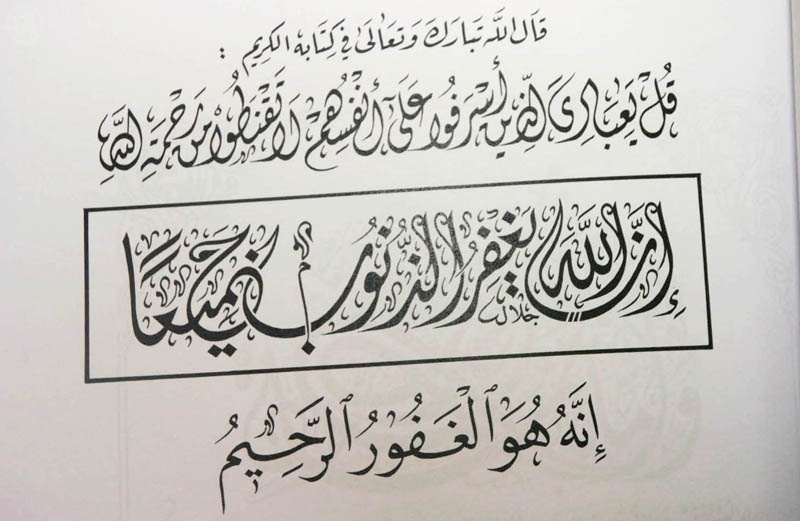 قال الله تبارك وتعالى في كتابه الكريم :
قُلْ يَعِبَادِيَ الَّذِينَ أَسْرَفُوا عَلَى أَنْفُسِهِمْ لَا تَقْنَطُوا مِنْ رَحْمَةِ اللَّهِ
إِنَّ اللَّهَ يَغْفِرُ الذُّنُوبَ جَمِيعًا
جلال
إِنَّهُ هُوَ ٱلْغَفُورُ ٱلرَّحِيمُ